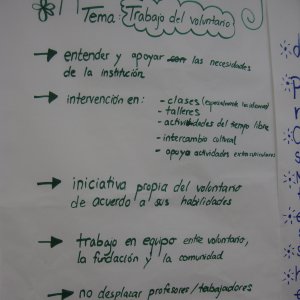 Tema: Trabajo del voluntario
→ entender y apoyar las necesidades
de la institución
→ intervención en: - clases (especialmente
- talleres
- actividades del tiempo libre
- intercambio cultural
- apoya actividades extracurriculares
→ iniciativa propia del voluntario
de acuerdo a sus habilidades
→ trabajo en equipo entre voluntario,
la fundación y la comunidad
→ no desplacar profesores/trabajadores